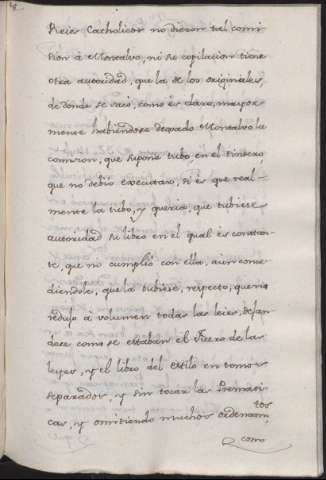 Reies Catholicos no dieron tal comi-
sion à Montalvo, ni se copilacion tiene
otra autoridad, que la de los originales,
de donde se sacò, como es claro, mayor-
mente habiendose dexado Montalvo la
comision, que supone tubo, en el tintero,
que no debio executarse, si es que real-
mente la tubo, y queria, que tubiese
autoridad su libro en el qual es constan-
te, que no cumpliò con ella, aun conce-
diendole, que la tubiese, respecto, que no
reduxo à volumen todas las leies, dejan-
dose como se estaban el Fuero de las
leyes, y el libro del estilo en tomos
separados, y sin tocar las Premati-
cas, y omitiendo muchos ordenamien-
tos
como